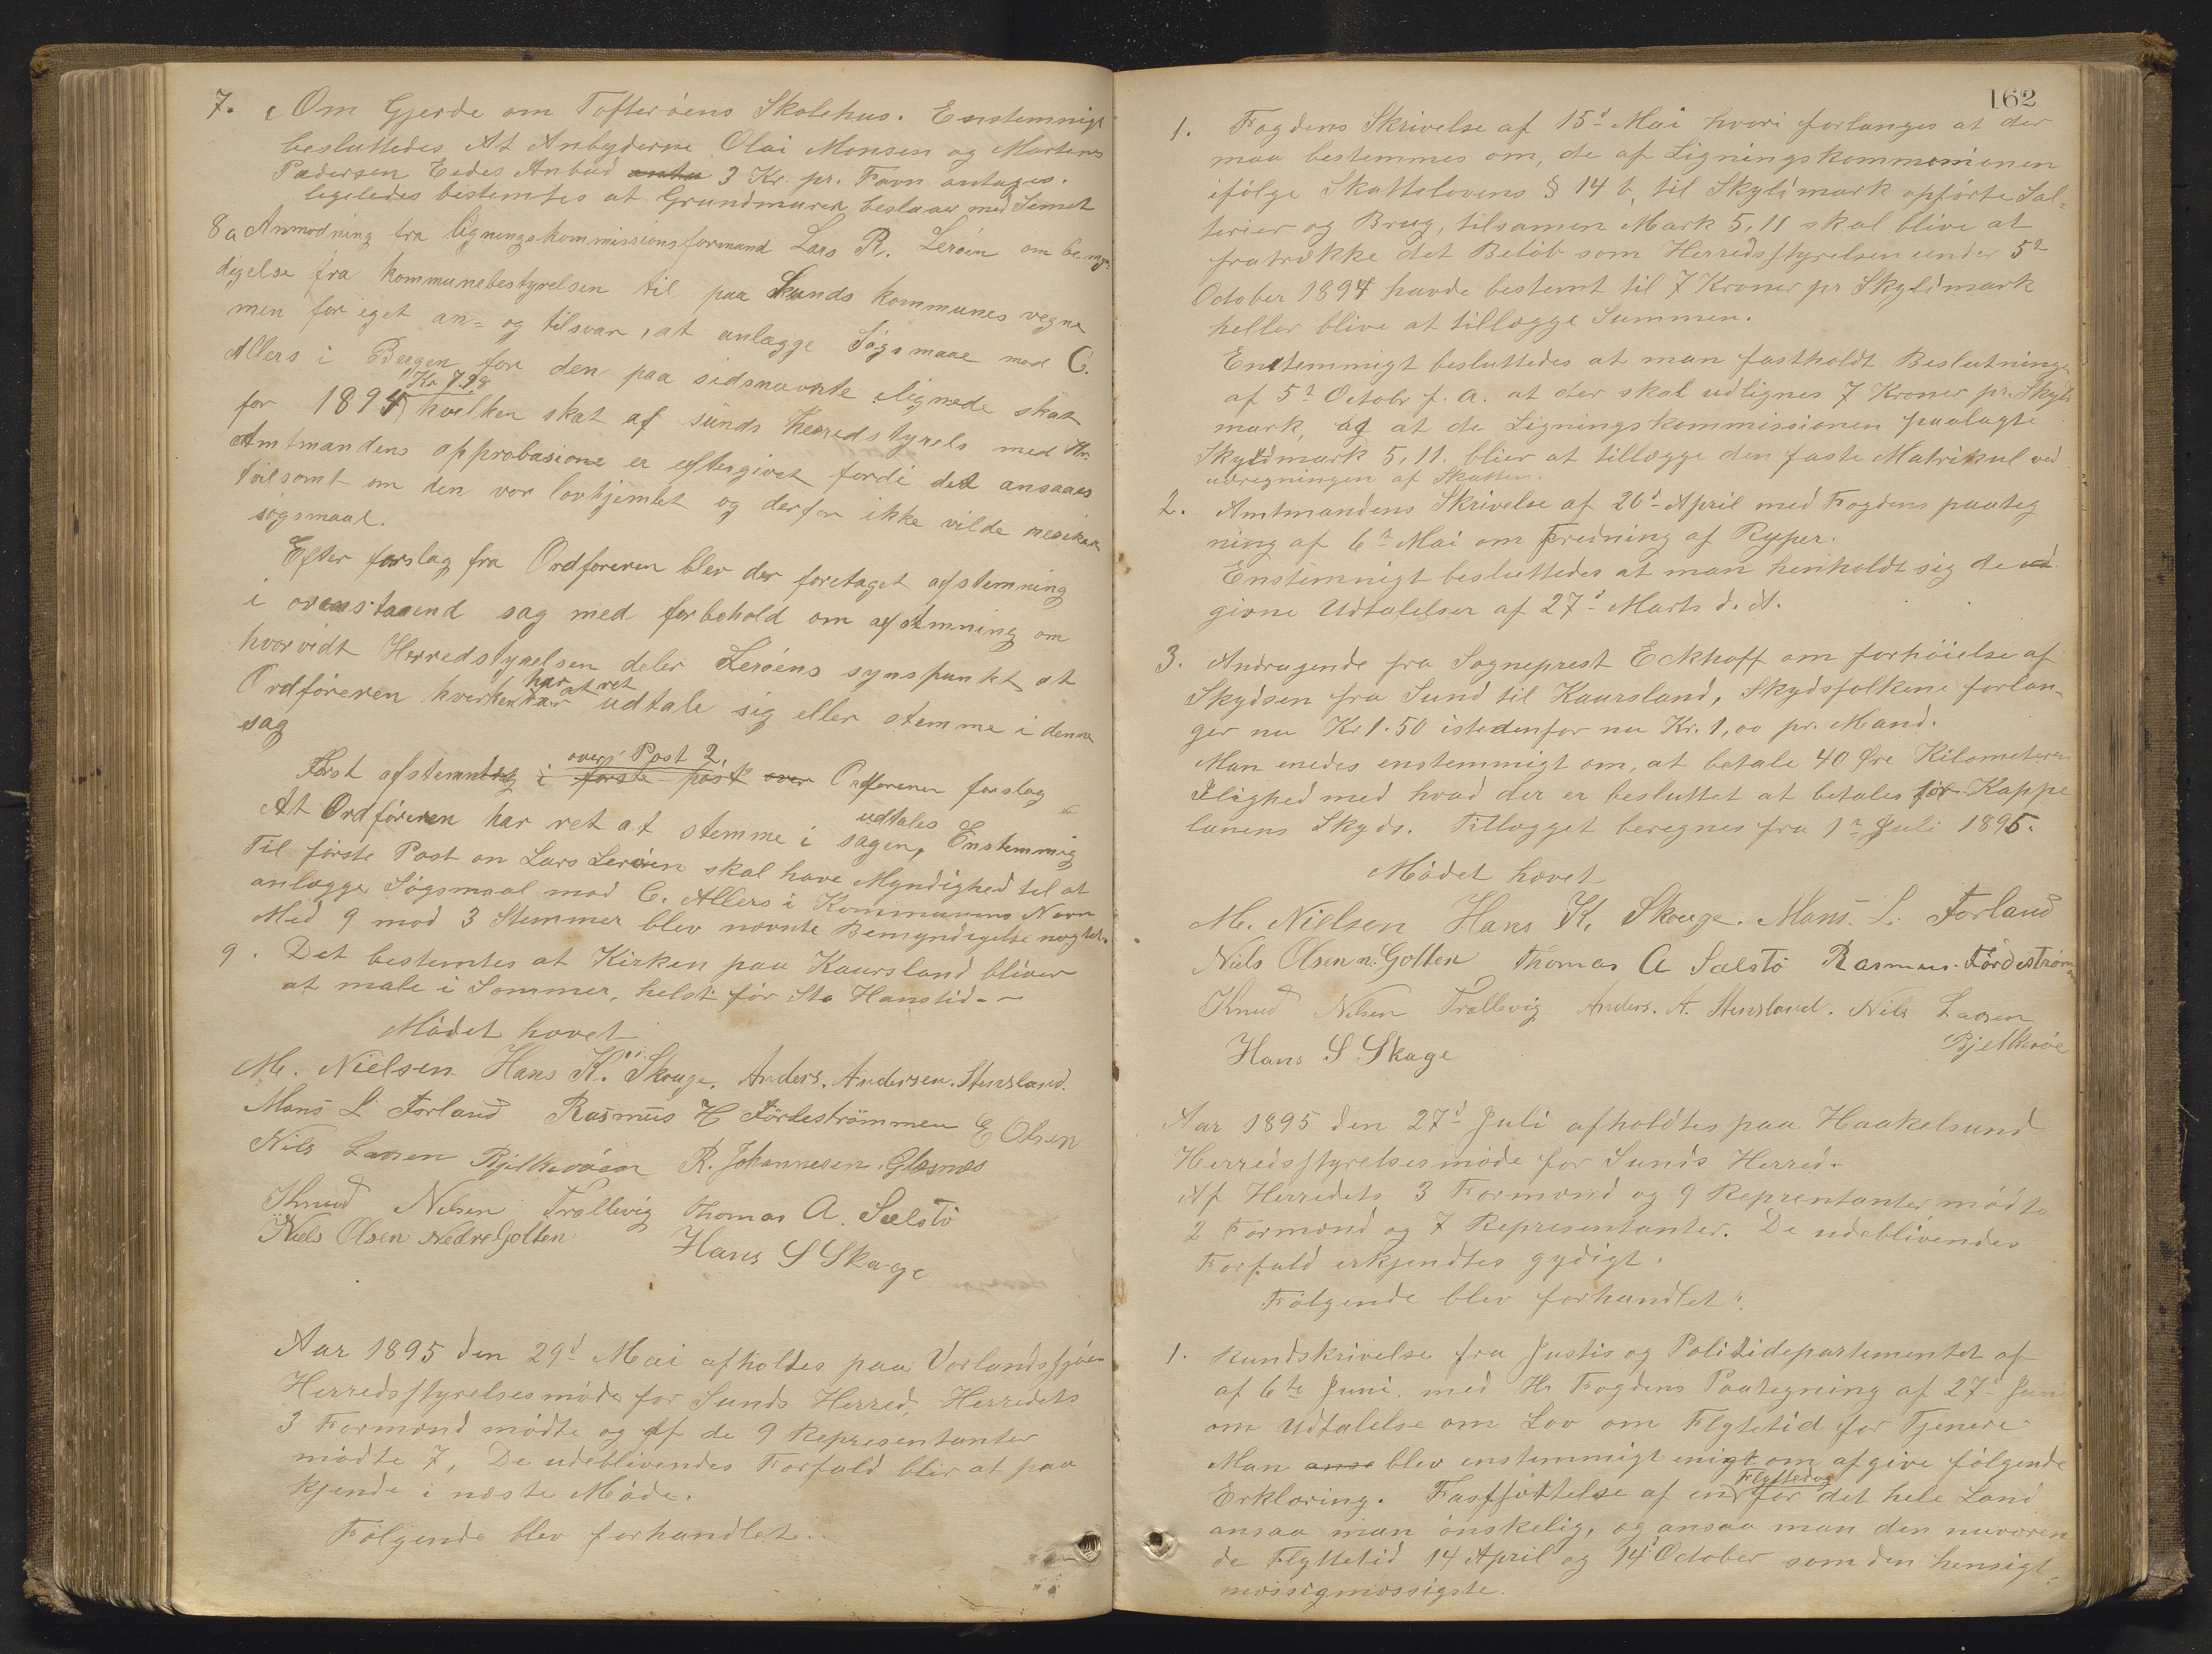 7. Om Gjerde om Tofterøens Skolehus. Enstemmigt
besluttedes At Anbyderne Olai Monsen og Martines
Pedersen Eedes Anbud antu 3 Kr. pr. Favn antages.
ligeledes bestemtes at Grundmuren beslaaes med Sement
8a Anmodning fra ligningskommissionsformand Lars R. Lerøen om bemyn
digelse fra kommunebestyrelsen til paa Sunds kommunes vegne
men for eget an- og tilsvar, at anlægge Søgsmaal mod C.
Allers i Bergen for den paa sidsnævnte lignede skat
for 1894, Kr 7.98 hvilken skat af sunds Herredstyrels med Hr.
Amtmandens approbasione er eftergivet fordi det ansaaes
tvilsomt om den var lovhjemlet og derfor ikke vilde
søgsmaal.
Efter forslag fra Ordføreren blev der foretaget afstemning
i ovenstaaend sag med forbehold om afstmning om
hvorvidt Herredstyrelsen deler Lerøens synspunkt at
Ordføreren hverken har at ret udtale sig eller stemme i denne
sag
Først afstemning i første post over over Post 2, Ordførerer forslag
At Ordføreren har ret at stemme i udtales sagen, Enstemmig
Til første Post on Lars Lerøen skal have Myndighed til at
anlægge Søgsmaal mod C. Allers i Kommunens Navn
Med 9 mod 3 Stemmer blev nævnte Bemyndigelse nægtet.
9. Det bestemtes at Kirken paa Kaursland bliver
at male i Sommer, helst før Sto Hanstid.
Mødet hævet
M. Nielsen Hans K. Skouge. Anders. Andersen. Stensland.
Mons L Forland Rasmus H Førdestrømmen E Olsen
Nils Larsen Bjelkerøen R. Johannesen Glesnæs
Knud Nilsen Trællevig Thomas A. Sælstø
Niels Olsen Nedre Golten Hans S Skage
Aar 1895 den 29d Mai afholdes paa Vorlandssjøen
Herredsstyrelsesmøde for Sunds Herred, Herredets
3 Formænd mødte og af de 9 Representanter
mødte 7, De udeblivendes Forfald blir at paa
kjende i næste Møde.
Følgende blev forhandlet.
162
1. Fogdens Skrivelse af 15d Mai hvori forlanges at der
maa bestemmes om, de af Ligningskommmisionen
ifølge Skattelovens § 14 b, til Skyldmark opførte Sal-
terier og Brug, tilsamen Mark 5,11 skal blive at
fratrække det Beløb som Herredsstyrelsen under 5t
October 1894 havde bestemt til 7 Kroner pr Skyldmark
heller blive at tillægge Summen.
Enstemmigt besluttedes at man fastholdt Beslutninge
af 5t Octobr f. A. at der skal udlignes 7 Kroner pr. Skyld
mark, og at de Ligningskommissionen paalagte
Skyldmark 5,11. blier at tillægge den faste Matrikul ved
udregningen af Skatten.
2. Amtmandens Skrivelse af 26d April med Fogdens paateg
ning af 6t Mai om Fredning af Ryper.
Enstemnigt besluttedes at man henholdt sig de ud
givne Udtalelser af 27d Marts d. A.
3. Andragende fra Sogneprest Eckhoff om forhøielse af
Skydsen fra Sund til Kaursland, Skydsfolkene forlan-
ger nu Kr 1.50 istedenfor nu Kr. 1,00 pr. Mand.
Man enedes enstemmigt om, at betale 40 Øre Kilometeren
Ilighed med hvad der er besluttet at betales for Kappe
lanens Skyds. Tillægget beregnes fra 1ste Juli 1895.
Mødet hævet
M. Nielsen Hans K. Skouge. Mons L. Forland
Niels Olsen n. Golten Thomas A Sælstø Rasmus Førdestrømen
Knud Nilsen Trællevig Anders. A. Stensland. Nils Larsen
Bjelkerøe
Hans S Skage
Aar 1895 den 27d Juli afholdtes paa Haakelsund
Herredsstyrelsesmøde for Sunds Herred.
Af Herredets 3 Formænd og 9 Reprentanter mødte
2 Formænd og 7 Representanter. De udeblivendes
Forfald erkjendtes gydigt.
Følgende blev forhandlet:
1. Rundskrivelse fra Justis og Politidepartementet af
af 6te Juni. med Hr Fogdens Paategning af 27d Juni
om Udtalelse om Lov om Flytetid for Tjenere
Man anse blev enstemmigt enigt om afgive følgende
Erklæring. Fastsættelse af en Flyttedag for det hele Land
ansaa man ønskelig, og ansaa man den nuværen
de Flyttetid 14 April og 14 October som den hensigt-
mæssigmæssigste.